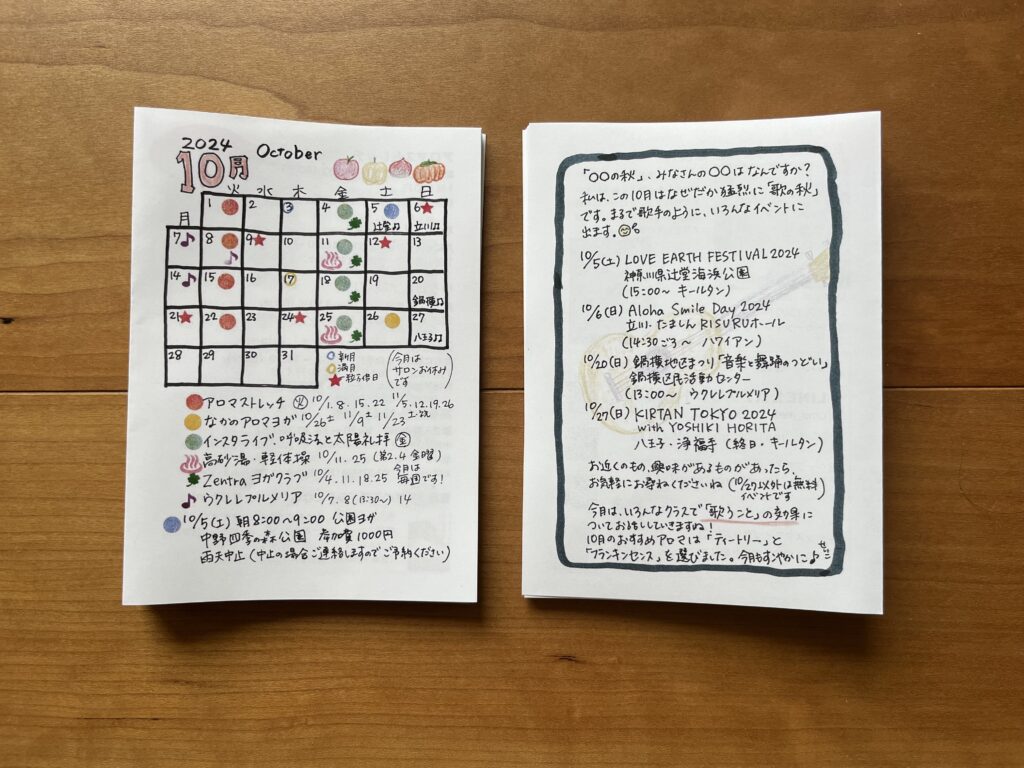 2024
10月 October
月 火 水 木 金 土 日
1 2 3 4 5 辻堂♫ 6 立川♫
7♪ 8♪ 9★ 10 11 12★ 13
14♪ 15 16 17 18 19 20 鍋横♫
21★ 22 23 24★ 25 26 27 八王子♫
28 29 30 31
新月
満月
★一粒万倍日
今月は
サロンお休み
です
アロマストレッチ 火 10/1.8.15.22 11/5.12.19.26
なかのアロマヨガ 10/26土 11/9土 11/23土・祝
インスタライブ・呼吸法と太陽礼拝 金
高砂湯・軽体操 10/11.25 (第2.4金曜)
Zentraヨガクラブ 10/4.11.18.25 今月は毎週です!
♪ウクレレプルメリア 10/7.8(13:30〜) 14
10/5(土) 朝8:00〜9:00 公園ヨガ
中野四季の森公園 参加費1000円
雨天中止(中止の場合ご連絡しますのでご予約ください)
「〇〇の秋」、みなさんの〇〇はなんですか?
私は、この10月はなぜだか猛烈に「歌の秋」
です。まるで歌手のように、いろんなイベントに
出ます。
10/5(土) LOVE EARTH FESTIVAL 2024
神奈川県辻堂海浜公園
(15:00〜 キールタン)
10/6(日) Aloha Smile Day 2024
立川・たましんRISURUホール
(14:30ごろ〜 ハワイアン)
10/20(日) 鍋横地区まつり「音楽と舞踊のつどい」
鍋横区民活動センター
(13:00〜 ウクレレプルメリア)
10/27(日) KIRTAN TOKYO 2024
with YOSHIKI HORITA
八王子・浄福寺 (終日・キールタン)
お近くのもの、興味があるものがあったら、
お気軽にお尋ねくださいね (10/27以外は無料イベントです)
今月は、いろんなクラスで「歌うこと」の効果に
ついてお話ししていきますね!
10月のおすすめアロマは「ティートリー」と
「フランキンセンス」を選びました。今月もすこやかに♪